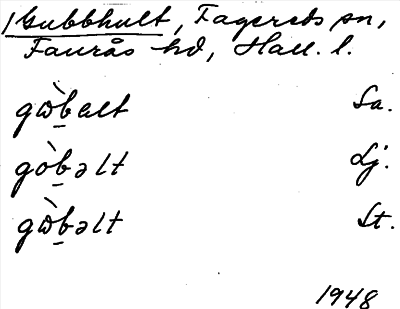 Gubbhult, Fagereds sn,
Faurås hd, Hall. l.
gὼb̲ɐlt Sa.
gòb̲əlt Lj.
gὼb̲əlt St.
1948